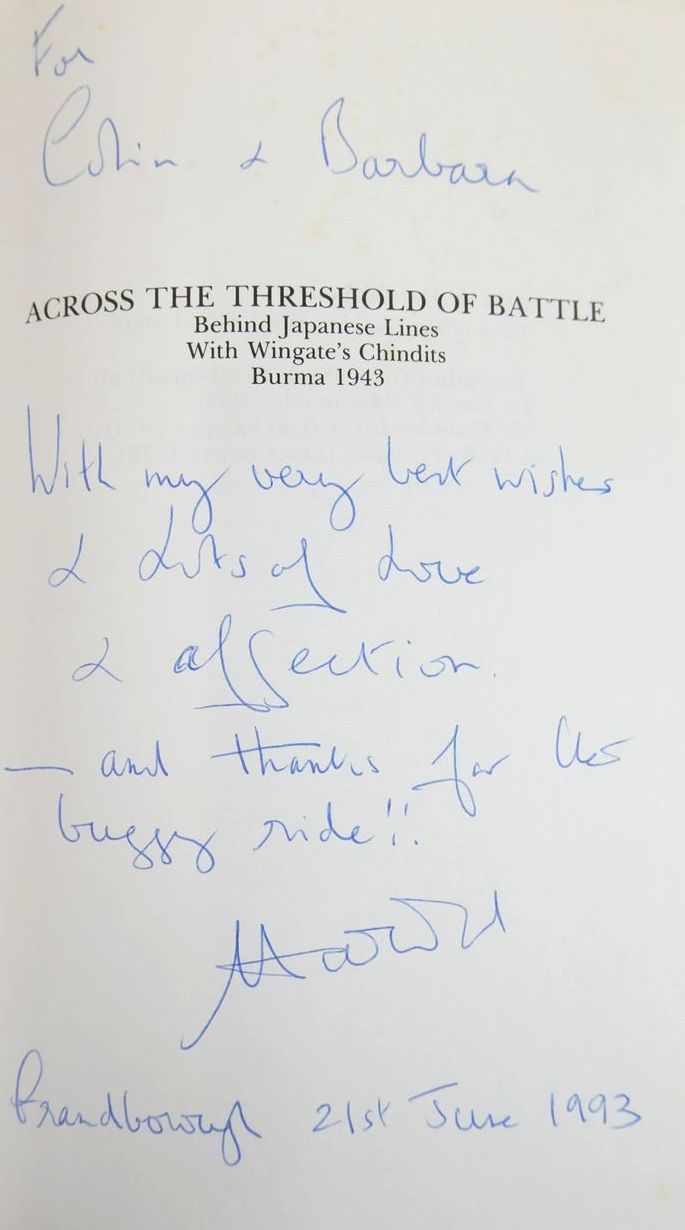 For
Colin & Barbara
ACROSS THE THRESHOLD OF BATTLE
Behind Japanese Lines
With Wingate's Chindits
Burma 1943
With my very best wishes
& Lots of Love
& affection.
— and thanks for the
buggy ride!!
Harold
Grandborough 21st June 1993